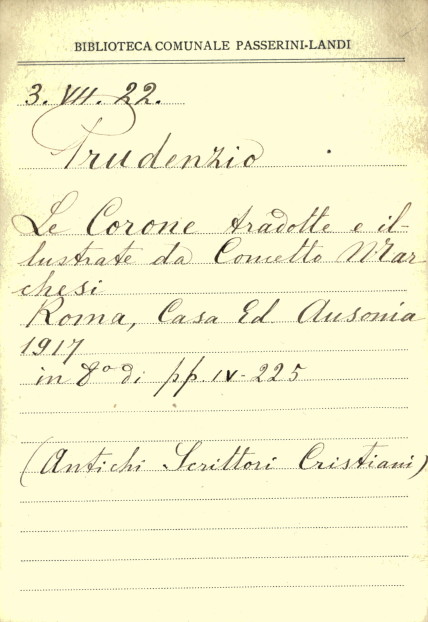 BIBLIOTECA COMUNALE PASSERINI-LANDI
3. VII. 22.
Prudenzio
Le Corone tradotte e il-
lustrate da Concetto Mar-
chesi
Roma, Casa Ed. Ausonia
1917
in 8° di pp. IV-225
(Antichi Scrittori Cristiani)